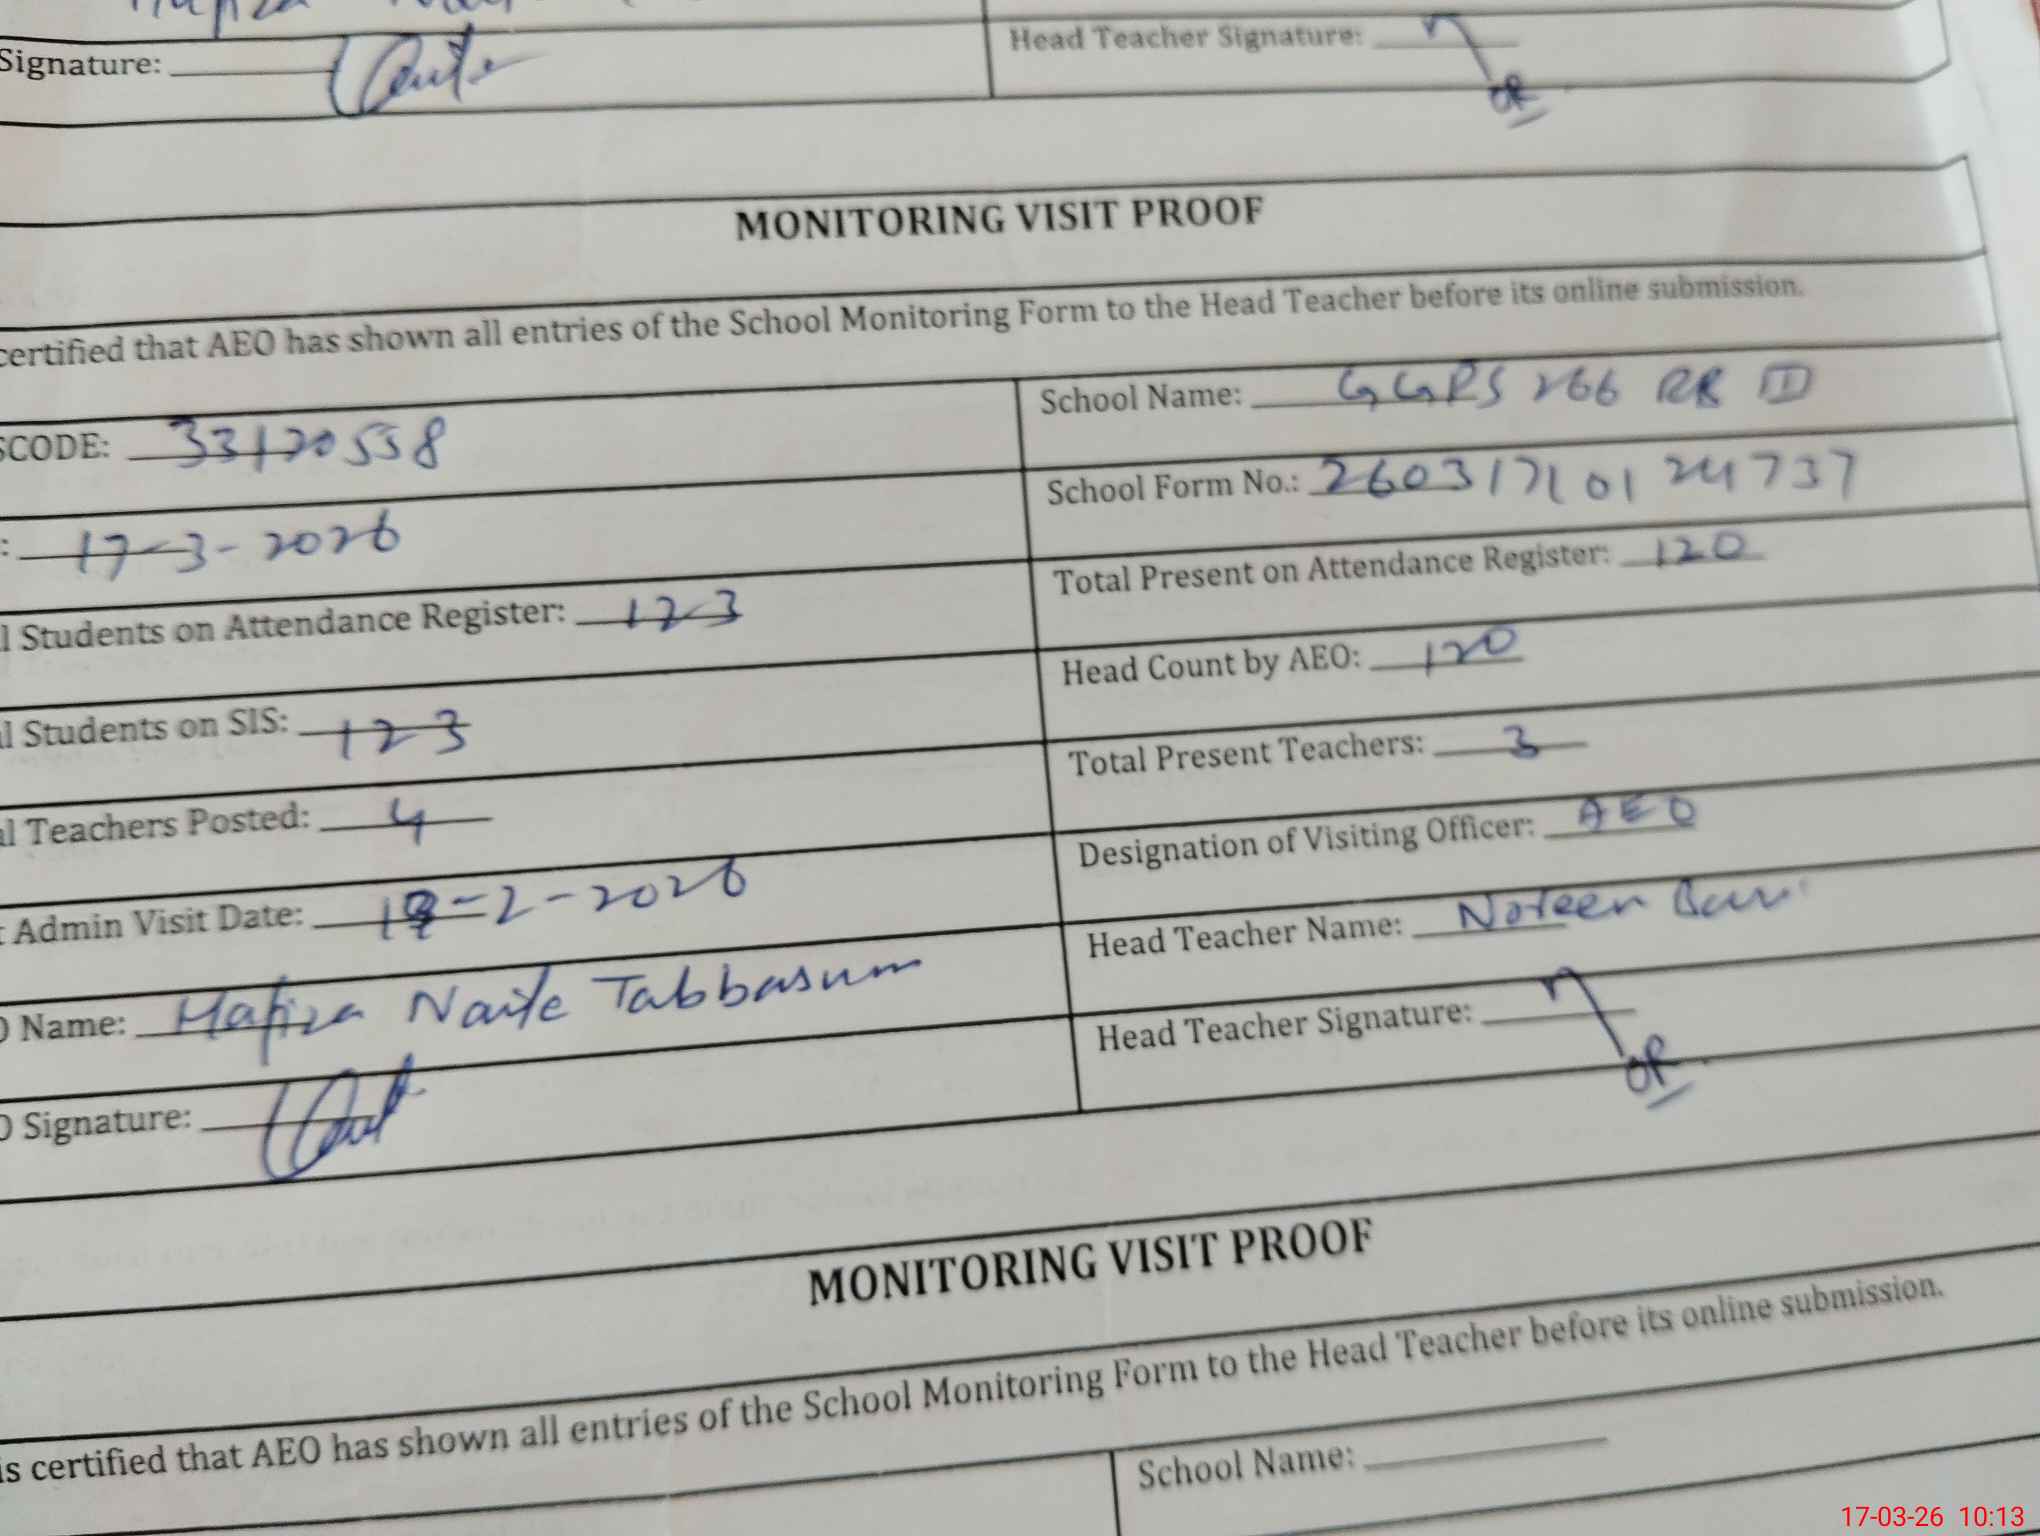 Signature:
Head Teacher Signature:
OR
MONITORING VISIT PROOF
certified that AEO has shown all entries of the School Monitoring Form to the Head Teacher before its online submission.
SCODE: 33120558
School Name: GGPS 266 RB II
: 17-3-2026
School Form No.: 26031710124737
l Students on Attendance Register: 123
Total Present on Attendance Register: 120
l Students on SIS: 123
Head Count by AEO: 120
al Teachers Posted: 4
Total Present Teachers: 3
t Admin Visit Date: -2-2026
Designation of Visiting Officer: AEO
O Name: Hafiza Naile Tabbasum
Head Teacher Name: Noreen
O Signature:
Head Teacher Signature:
OR
MONITORING VISIT PROOF
is certified that AEO has shown all entries of the School Monitoring Form to the Head Teacher before its online submission.
School Name:
17-03-26 10:13